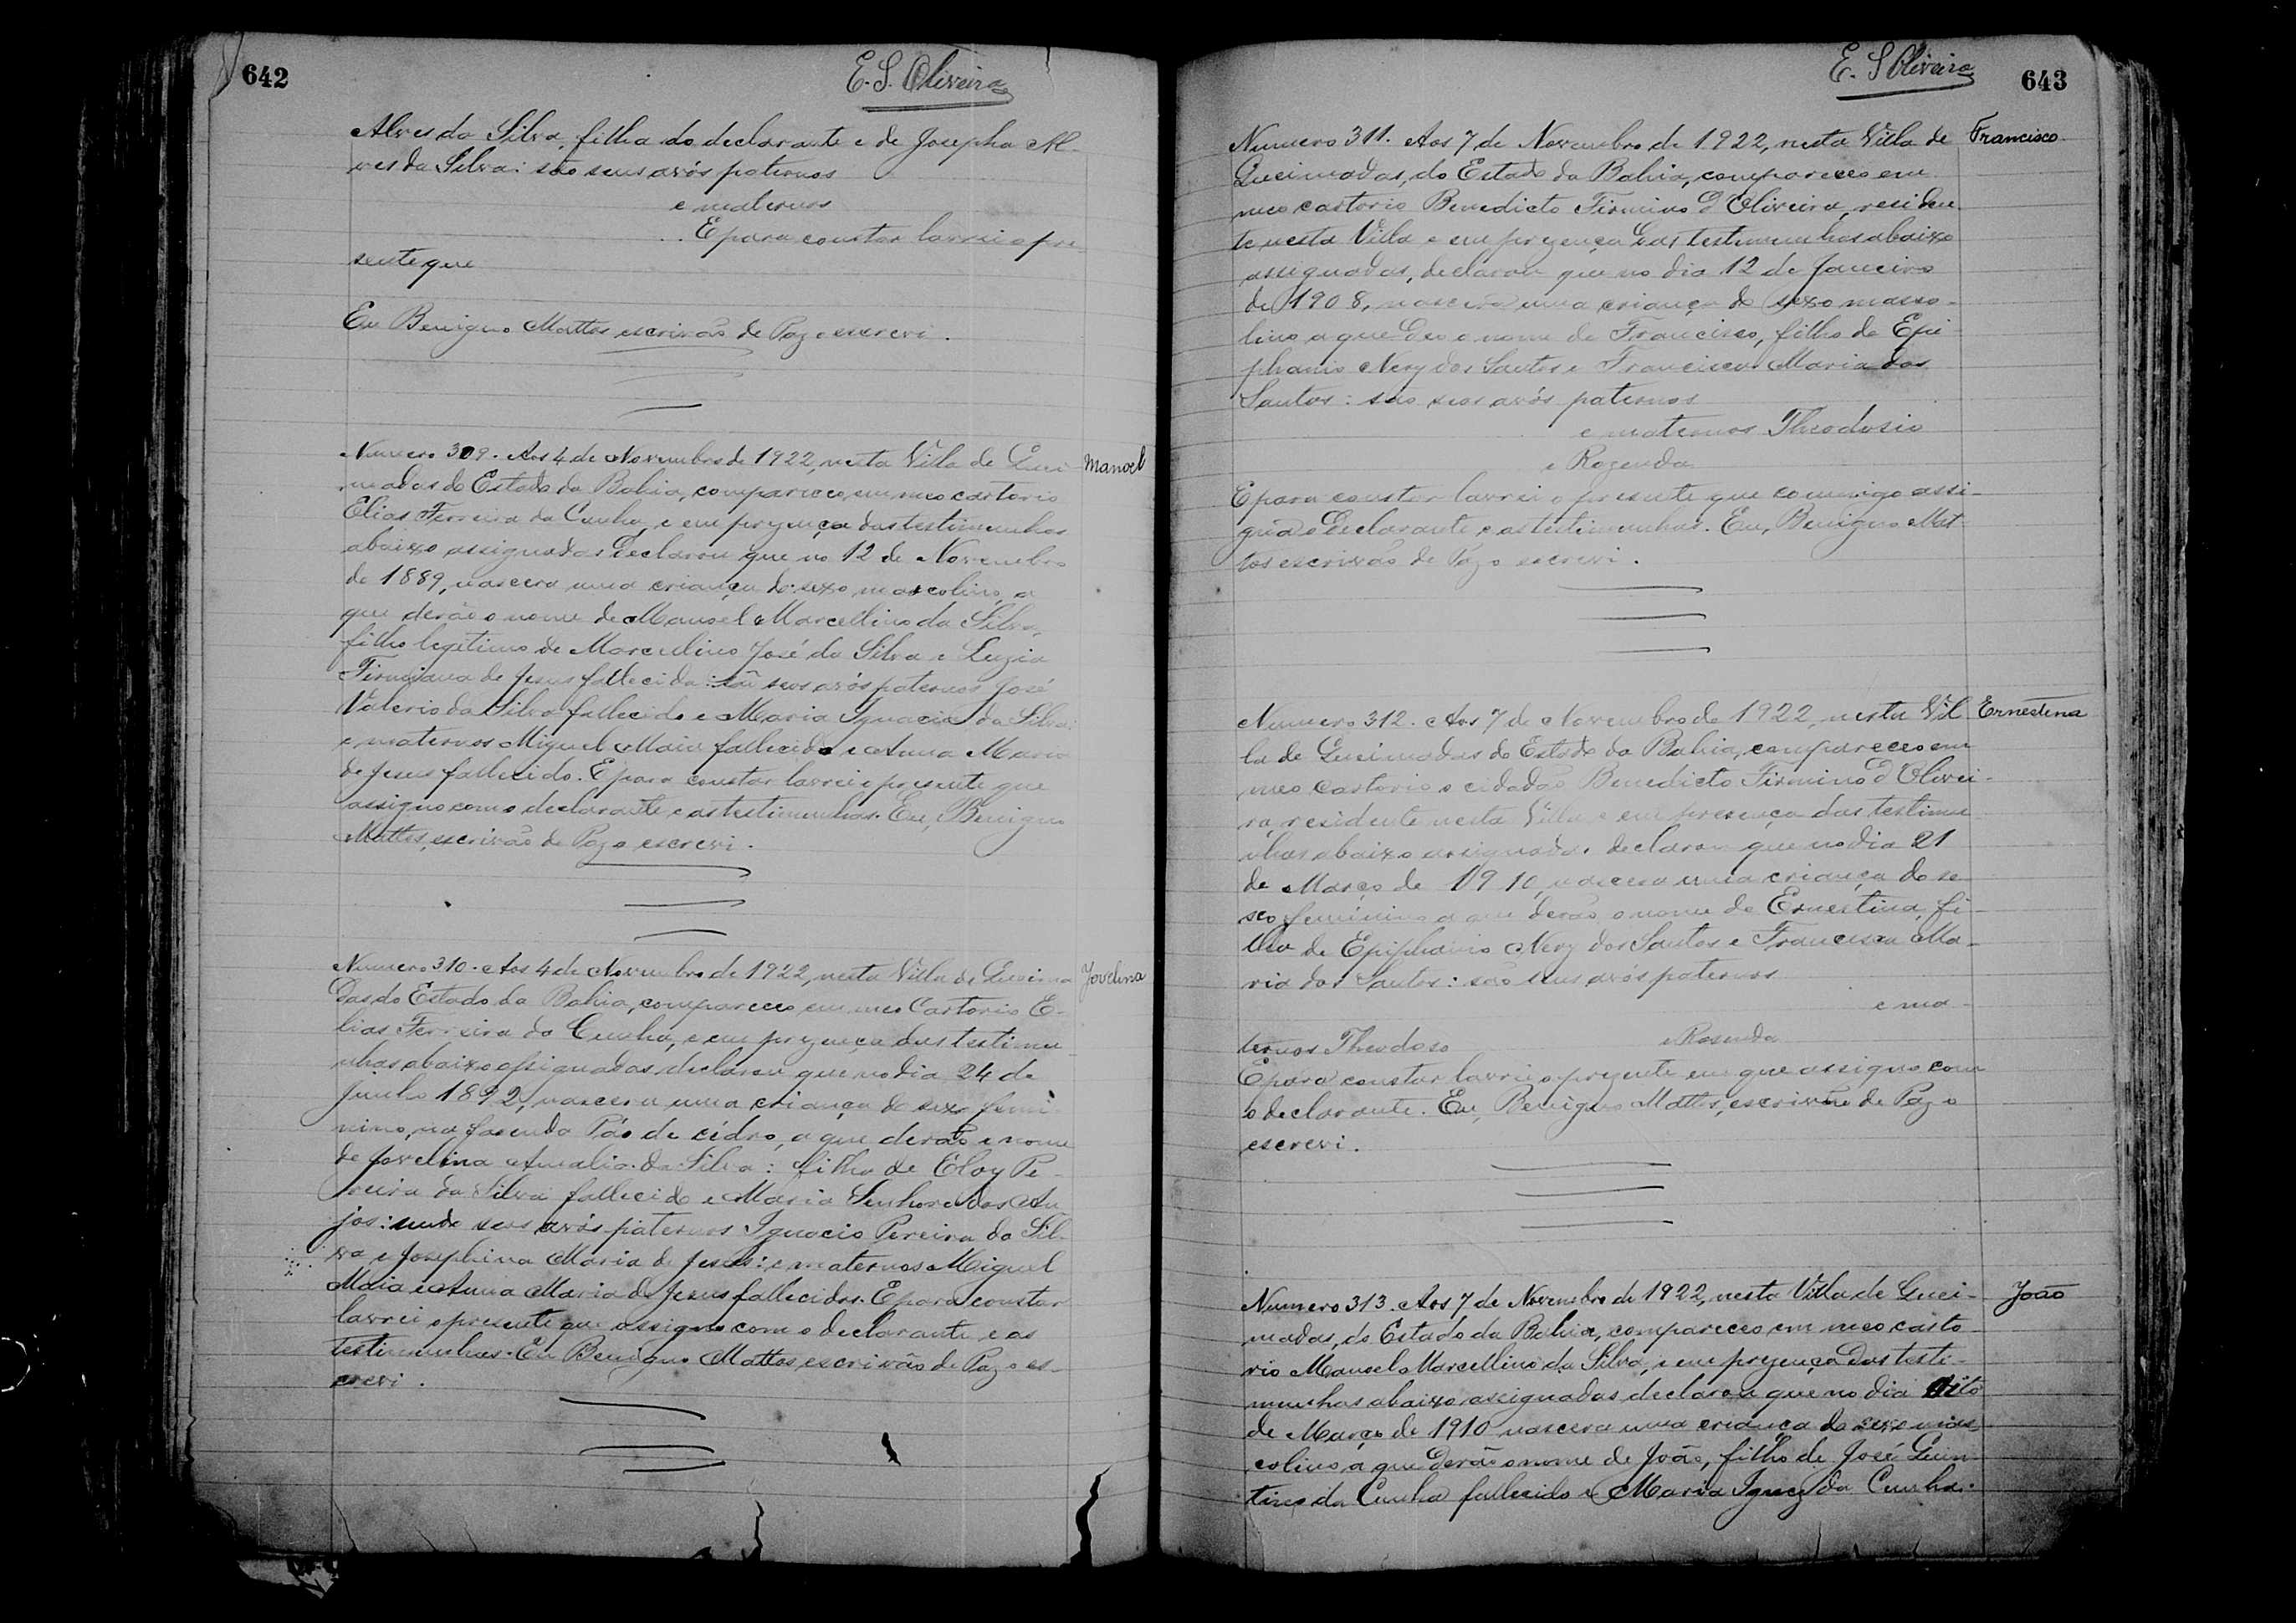 642
E. S. Oliveira
Alves da Silva, filha do declarante e de Josepha Al-
ves da Silva: são seus avós paternos
e maternos
E para constar lavrei o pre
sente que
Eu Benigno Mattos escrivão de Paz o escrevi.
Numero 309. Aos 4 de Novembro de 1922, nesta Villa de Quei-
Manoel
madas do Estado da Bahia, compareceo em meo cartorio
Elias Ferreira da Cunha, e em prezença das testimunhas
abaixo assignadas declarou que no 12 de Novembro
de 1889, nascera uma criança do sexo mascolino, a
que derão o nome de Manoel Marcellino da Silva,
filho legitimo de Marculino José da Silva e Luzia
Firmiana de Jesus fallecida: são seos avós paternos José
Valerio da Silva fallecido e Maria Ignacia da Silva:
e maternos Miguel Maia fallecido e Anna Maria
de Jesus fallecido. E para constar lavrei o presente que
assigno com o declarante e as testimunhas. Eu, Benigno
Mattos, escrivão de Paz o escrevi.
Numero 310. Aos 4 de Novembro de 1922, nesta Villa de Queima
Jovelina
das do Estado da Bahia, compareceo em meo Cartorio E-
lias Ferreira da Cunha, e em prezença das testimu-
nhas abaixo assignadas declarou que no dia 24 de
junho 1892, nascera uma criança do sexo femi-
nino, na fasenda Páo de cédro, a que derão o nome
de Jovelina Amalia da Silva: filha de Eloy Pe-
reira da Silva fallecido e Maria Senhora dos An
jos: sendo seos avós paternos Ignacio Pereira da Sil-
va e Josephina Maria de Jesus: e maternos Miguel
Maia e Anna Maria de Jesus fallecidos. E para constar
lavrei o presente que assigno com o declarante e as
testimunhas. Eu Benigno Mattos, escrivão de Paz o es-
crevi.
E. S Oliveira
643
Numero 311. Aos 7 de Novembro de 1922, nesta Villa de
Francisco
Queimadas, do Estado da Bahia, compareceo em
meo cartorio Benedicto Firmino d'Oliveira, residen
te nesta Villa e em prezença das testimunhas abaixo
assignadas, declarou que no dia 12 de Janeiro
de 1908, nascera uma criança do sexo masco-
lino a que deo o nome de Francisco, filho de Epi
phanio Nery dos Santos e Francisca Maria dos
Santos: são seos avós paternos
e maternos Theodosio
e Rozenda
E para constar lavrei o presente que commigo assi-
gna o declarante e as testimunhas. Eu, Benigno Mat-
tos escrivão de Paz o escrevi.
Numero 312. Aos 7 de Novembro de 1922, nesta Vil
Ernestina
la de Queimadas do Estado da Bahia, compareceo em
meo cartorio o cidadão Benedicto Firmino d'Olivei-
ra, residente nesta Villa e em presença das testimu
nhas abaixo assignadas declarou que no dia 21
de Março de 1910, nascera uma criança do se
xo feminino a que derão o nome de Ernestina, fi-
lha de Epiphanio Nery dos Santos e Francisca Ma-
ria dos Santos: são seus avós paternos
e ma-
ternos Theodoso e Rosenda
E para constar lavrei o prezente em que assigno com
o declarante. Eu, Benigno Mattos, escrivão de Paz o
escrevi.
Numero 313. Aos 7 de Novembro de 1922, nesta Villa de Quei-
João
madas, do Estado da Bahia, compareceo em meo carto-
rio Manoel Marcellino da Silva, e em prezença das testi-
munhas abaixo assignadas declarou que no dia oito
de Março de 1910 nascera uma criança do sexo mas-
colino, a que derão o nome de João, filho de José Quin-
tino da Cunha fallecido e Maria Ignez da Cunha.